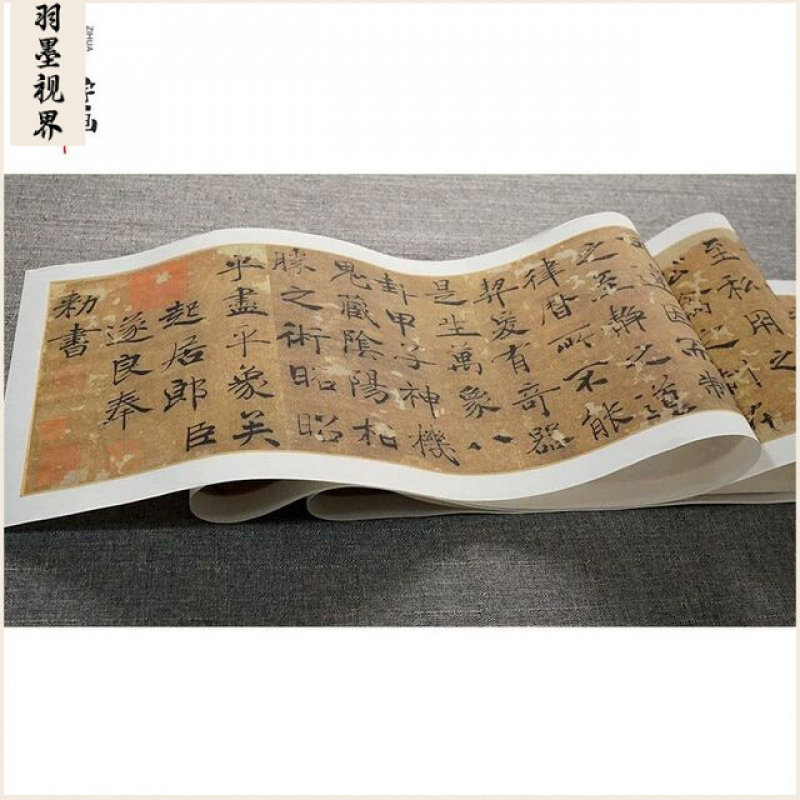 羽墨视界
ZIHUA
至私用之
之制在
違因而制
之至靜之道
律曆所不能
契爰有奇器
是生萬象八
卦甲子神機
鬼藏陰陽相
勝之術昭昭
乎盡乎象矣
起居郎臣
遂良奉
勅書